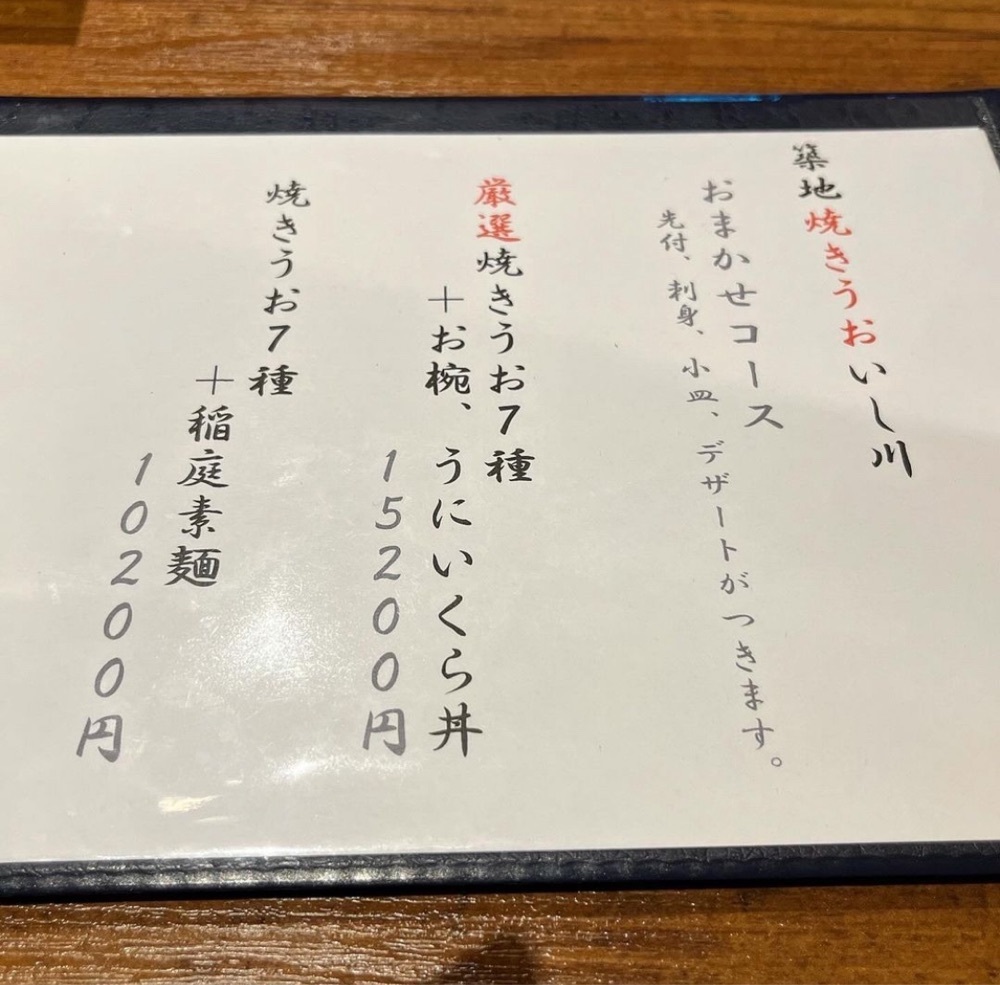 築地焼きうおいし川
おまかせコース
先付、刺身、小皿、デザートがつきます。
厳選焼きうお7種
＋お椀、うにいくら丼
15200円
焼きうお7種
＋稲庭素麺
10200円